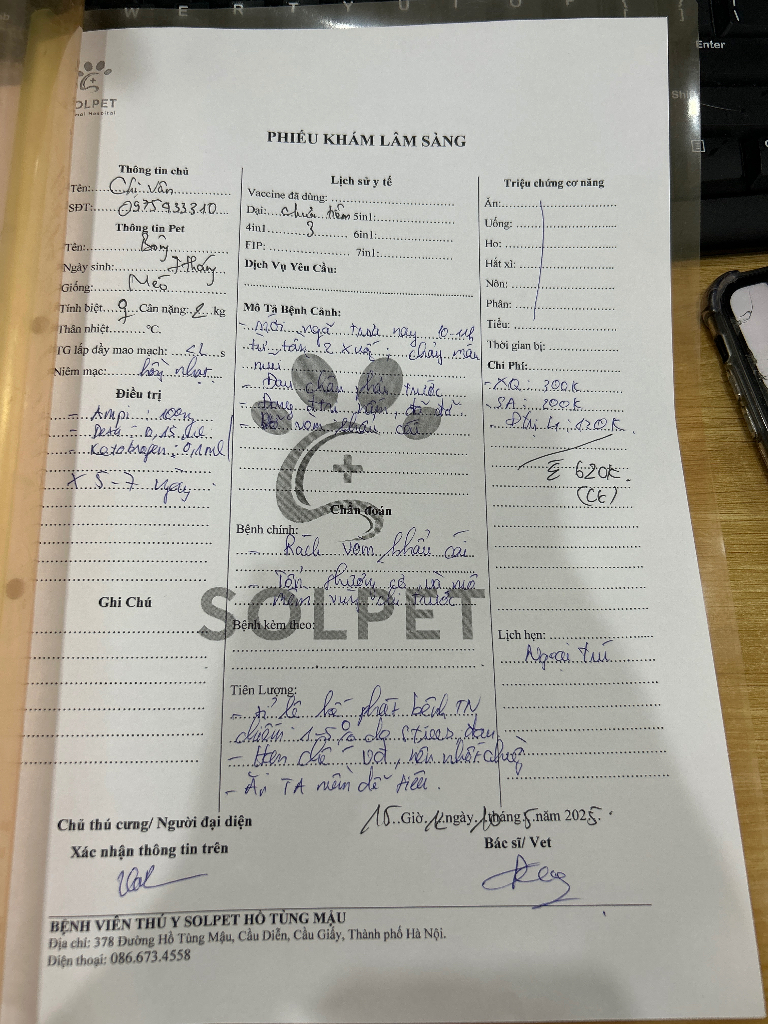 SOLPET
PHIẾU KHÁM LÂM SÀNG
Thông tin chủ
Tên: Chị Vân
SĐT: 0975933310
Thông tin Pet
Tên: Bông
Ngày sinh: 7 tháng
Giống: Mèo
Tính biệt ♀ Cân nặng: 2 kg
Thân nhiệt °C.
TG lấp đầy mao mạch: <2 s
Niêm mạc: hồng nhạt
Điều trị
- Ampi : 100
- Dexa : 0,15 ml
: 0,1ml
x 5-7 ngày
Ghi Chú
Lịch sử y tế
Vaccine đã dùng:
Dại: chưa tiêm 5in1:
4in1 3 6in1:
FIP: 7in1:
Dịch Vụ Yêu Cầu:
Mô Tả Bệnh Cảnh:
- Mới ngã trưa nay 10-11h
từ tầng 2 xuống, chảy máu
mũi
- Đau chân trước
vòm khẩu cái
Chẩn đoán
Bệnh chính:
- Rách vòm khẩu cái
- Tổn thương cơ và mô
mềm vùng chi trước
SOLPET
Bệnh kèm theo:
Tiên Lượng:
kế phát bệnh TN
chiếm 1-5% do stress, đau
- Hạn chế vđ, nên nhốt chuồng
- Ăn TA mềm dễ tiêu.
Triệu chứng cơ năng
Ăn:
Uống:
Ho:
Hắt xì:
Nôn:
Phân:
Tiểu:
Thời gian bị:
Chi Phí:
- XQ : 300k
- SA : 200k
- : 120k
Σ 620k.
(CK)
Lịch hẹn:
Ngoại trú
15 Giờ, ngày 10 tháng 5 năm 2025.
Chủ thú cưng/ Người đại diện
Xác nhận thông tin trên
Bác sĩ/ Vet
BỆNH VIỆN THÚ Y SOLPET HỒ TÙNG MẬU
Địa chỉ: 378 Đường Hồ Tùng Mậu, Cầu Diễn, Cầu Giấy, Thành phố Hà Nội.
Điện thoại: 086.673.4558
Enter